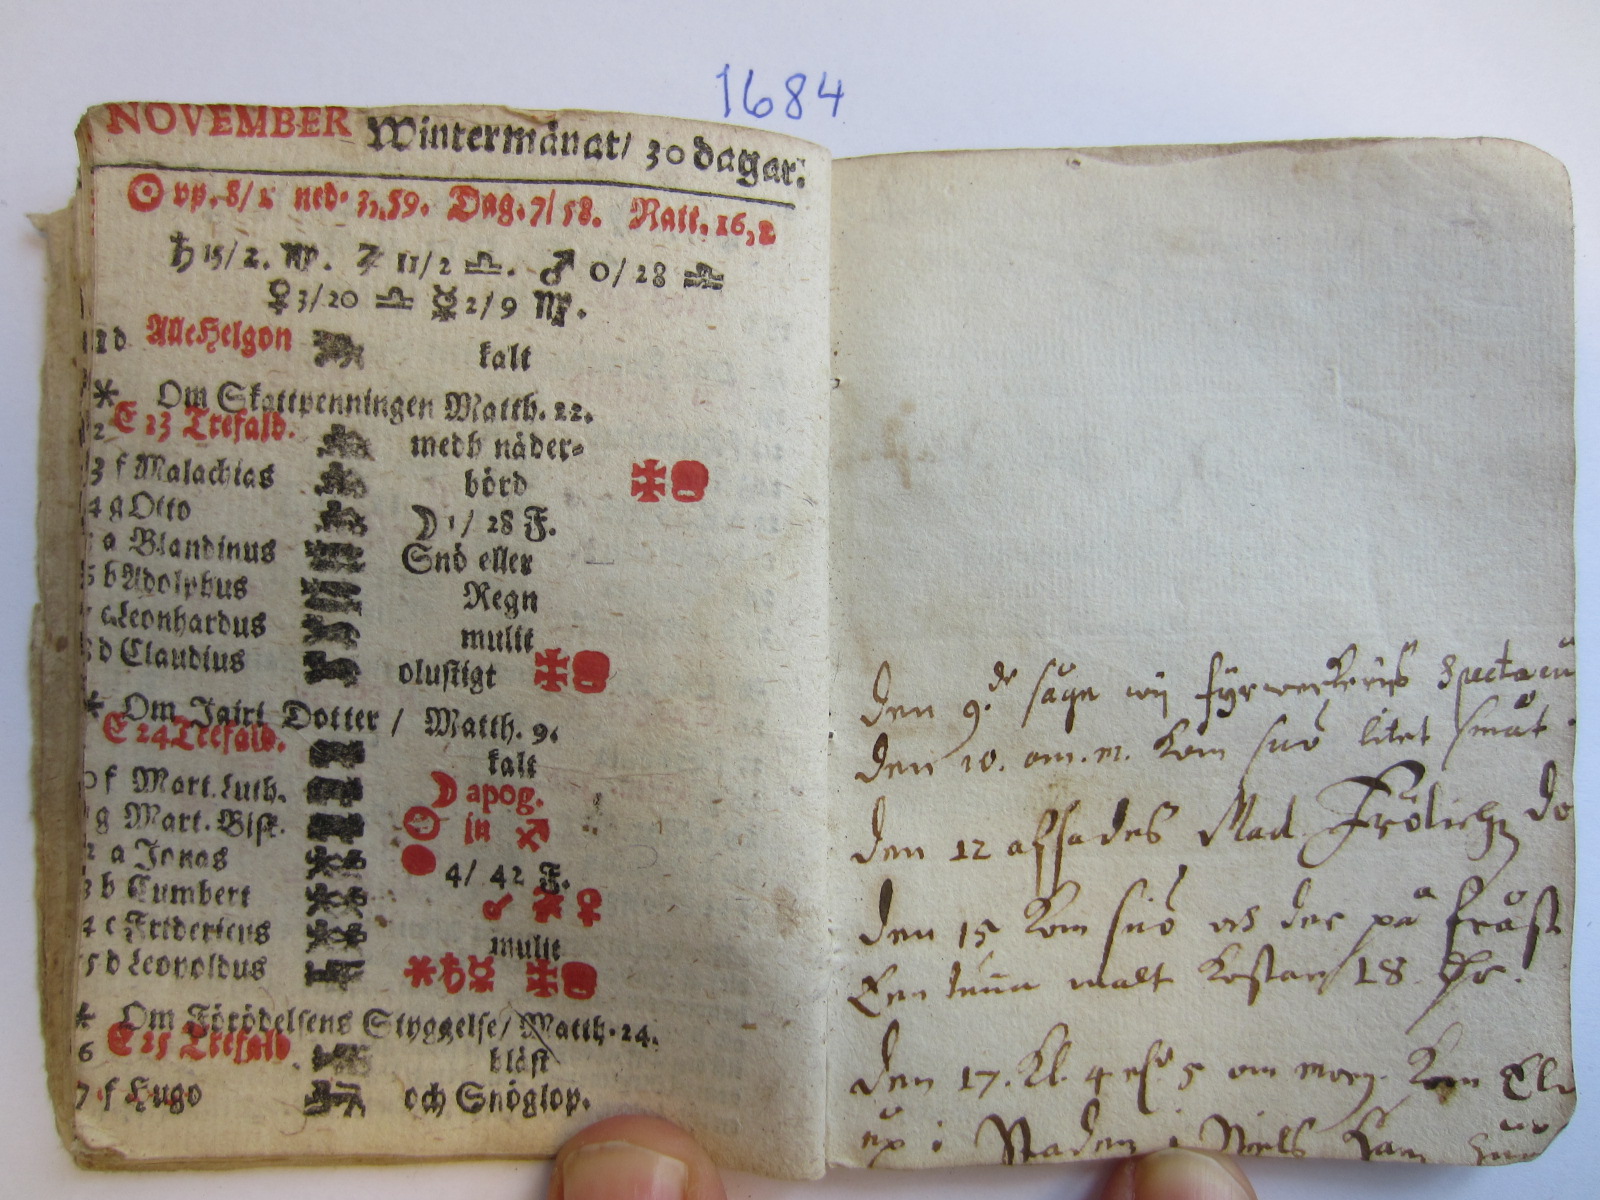 1684
NOVEMBER Wintermånat/ 30 dagar.
☉ vp. 8/ 1 ned. 3, 59. Dag. 7/ 58. Natt. 16, 2
♄ 15/ 2. ♍. ♃ 11/ 2 ♎. ♂ 0/ 28 ♎
♀ 3/ 20 ♎ ☿ 2/ 9 ♏.
1 d Alle Helgon kalt
* Om Skattpenningen Matth. 22.
2 E 23 Trefald. medh näder-
3 f Malachias börd
4 g Otto ☽ 1/ 28 F.
a Blandinus Snö eller
b Adolphus Regn
c Leonhardus mulit
d Claudius olustigt
* Om Jairi Dotter / Matth. 9.
E 24 Trefald. kalt
0 f Mart. Luth. ☽ apog.
g Mart. Bisk. ☉ in ♐
2 a Jonas ● 4/ 42 F.
3 b Cumbert ☌ * ♀
4 c Fridericus mulit
15 d Leopoldus * ♄ ☿
* Om Förödelsens Styggelse/ Matth. 24.
6 E 25 Trefald. blåst
7 f Hugo och Snöglop.
Den 9.de såge wij fyrwerkeris Spectacu
Den 10. om. m. kom snö litet smat
Den 12 affades Mad. Frölich
Den 15 kom snö och der på fråst
Een tunna malt kostar 18
Den 17. Kl. 4 efr 5 om morg. kom Eld
up i Staden i Niels